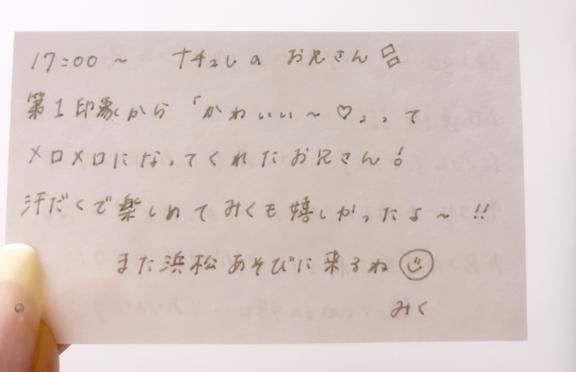 17:00～ ナチュレの お兄さん
第1印象から「かわいい～♡」って
メロメロになってくれたお兄さん!
汗だくで楽しめてみくも嬉しかったよ～!!
また浜松あそびに来るね
みく